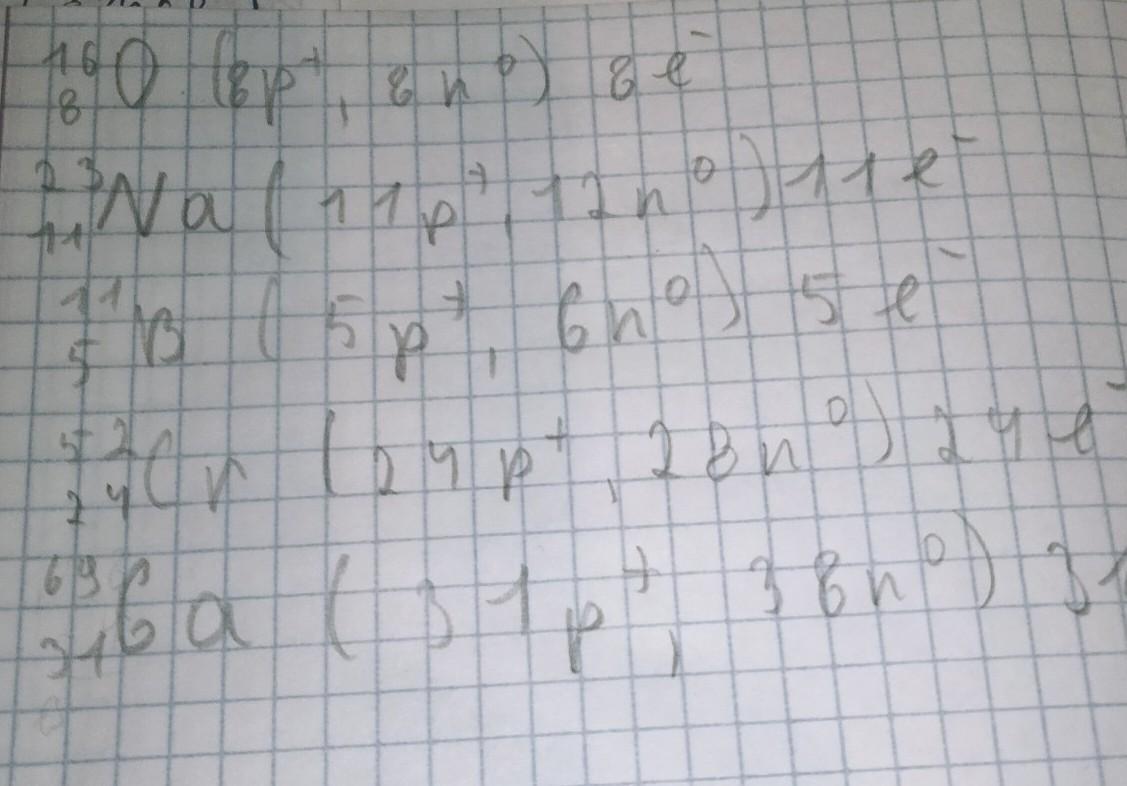 ¹⁶₈O (8p⁺, 8n⁰) 8e⁻
²³₁₁Na (11p⁺, 12n⁰) 11e⁻
¹¹₅B (5p⁺, 6n⁰) 5e⁻
⁵²₂₄Cr (24p⁺, 28n⁰) 24e⁻
⁶⁹₃₁Ga (31p⁺, 38n⁰) 31